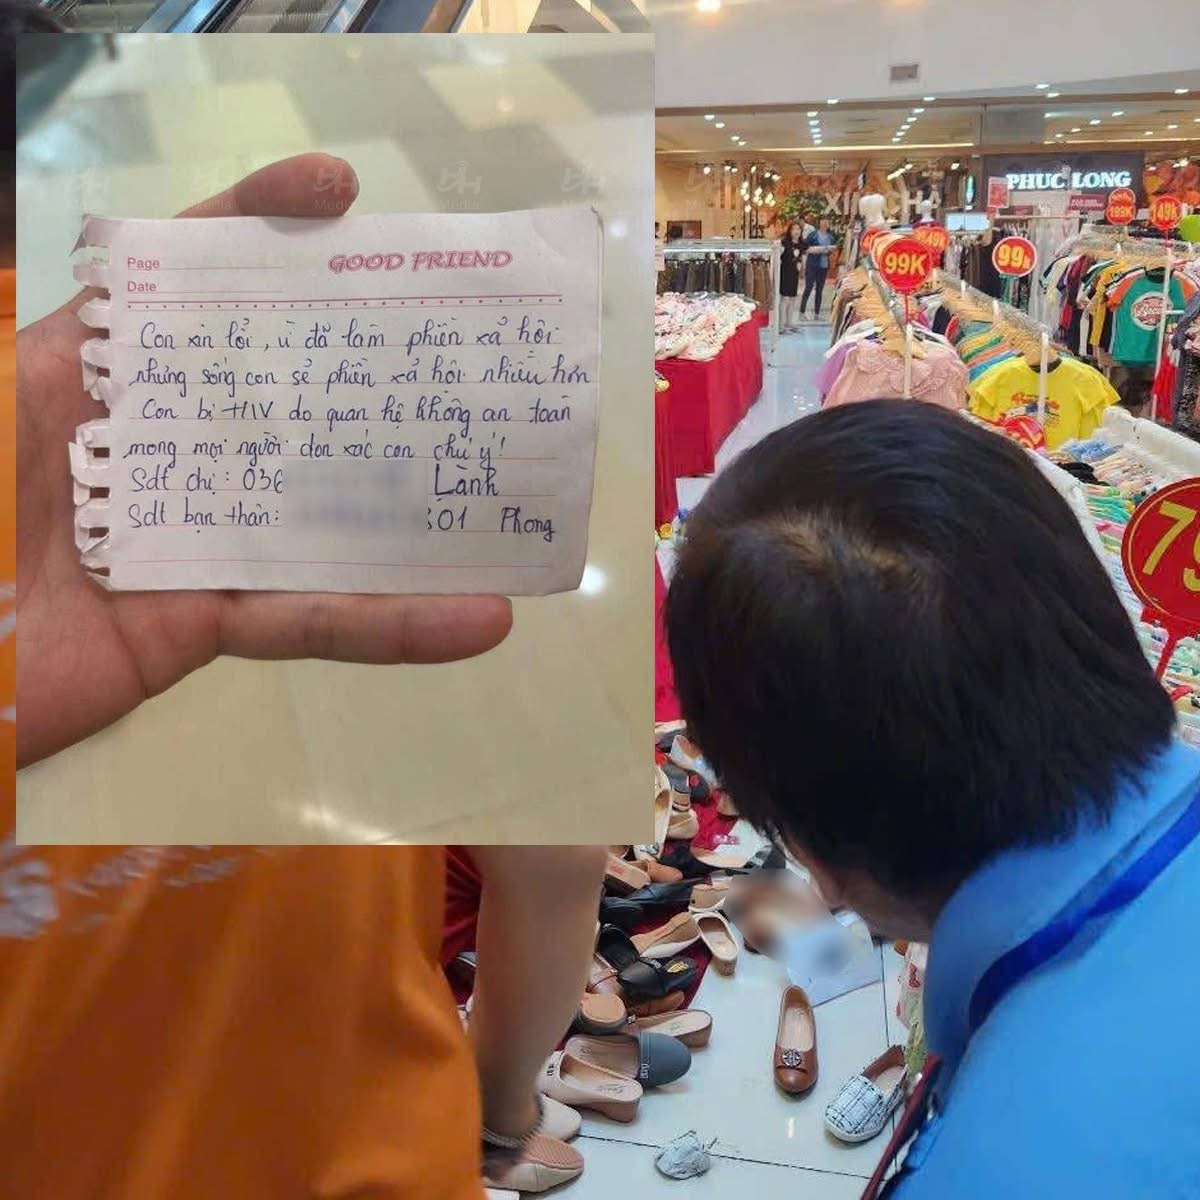 Page
GOOD FRIEND
Date
Con xin lỗi, vì đã làm phiền xả hội
nhưng sống con sẻ phiền xả hội nhiều hơn
Con bị HIV do quan hệ không an toàn
mong mọi người dọn xác con chú ý!
Sdt chị: 036 Lành
Sdt bạn thân: 01 Phong
PHUC LONG
99K
99K
199K
149K